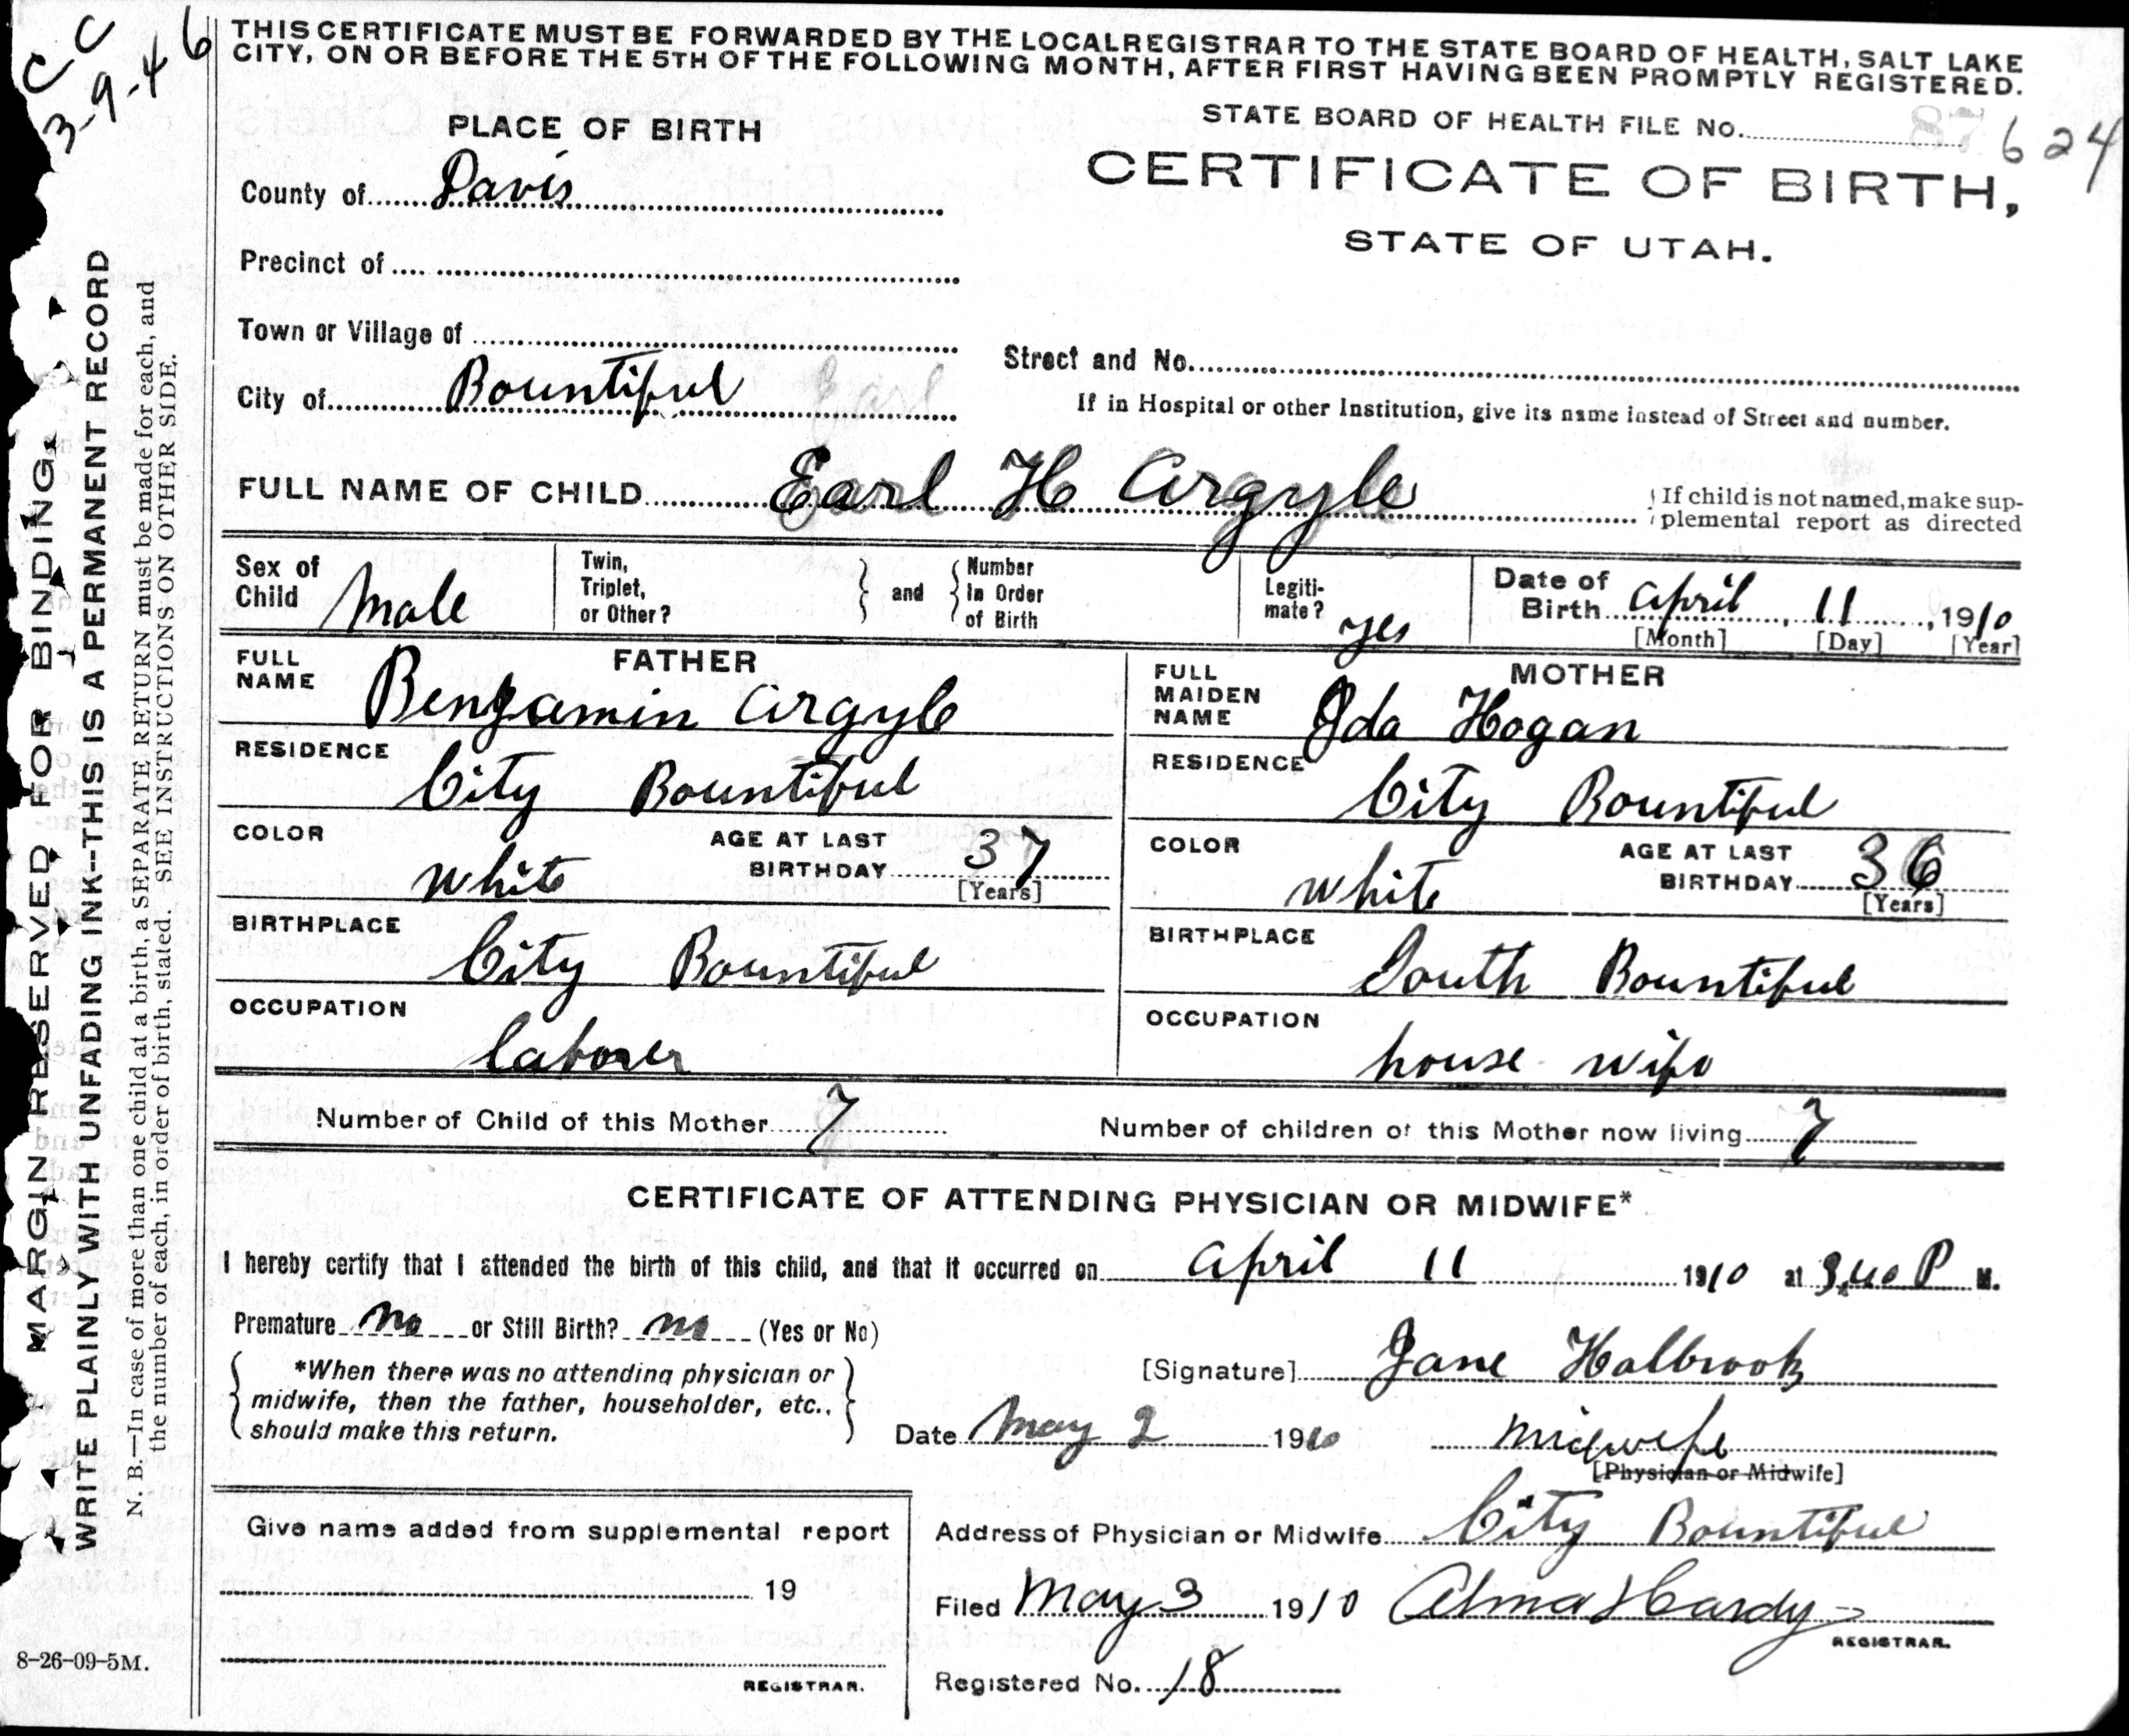 C C
3-9-46
THIS CERTIFICATE MUST BE FORWARDED BY THE LOCAL REGISTRAR TO THE STATE BOARD OF HEALTH, SALT LAKE
CITY, ON OR BEFORE THE 5TH OF THE FOLLOWING MONTH, AFTER FIRST HAVING BEEN PROMPTLY REGISTERED.
STATE BOARD OF HEALTH FILE No. 624
PLACE OF BIRTH
CERTIFICATE OF BIRTH,
STATE OF UTAH.
County of Davis
Precinct of
Town or Village of
Street and No.
City of Bountiful Earl
If in Hospital or other Institution, give its name instead of Street and number.
FULL NAME OF CHILD Earl H Argyle
If child is not named, make sup-
plemental report as directed
Sex of Child Male
Twin, Triplet, or Other?
and
Number In Order of Birth
Legiti-mate? yes
Date of Birth April 11, 1910
[Month] [Day] [Year]
FATHER
FULL NAME Benjamin Argyle
MOTHER
FULL MAIDEN NAME Ida Hogan
RESIDENCE City Bountiful
RESIDENCE City Bountiful
COLOR white
AGE AT LAST BIRTHDAY 37
[Years]
COLOR white
AGE AT LAST BIRTHDAY 36
[Years]
BIRTHPLACE City Bountiful
BIRTHPLACE South Bountiful
OCCUPATION laborer
OCCUPATION house wife
Number of Child of this Mother 7
Number of children of this Mother now living 7
CERTIFICATE OF ATTENDING PHYSICIAN OR MIDWIFE*
I hereby certify that I attended the birth of this child, and that it occurred on April 11 1910 at P M.
Premature no or Still Birth? no (Yes or No)
*When there was no attending physician or
midwife, then the father, householder, etc.,
should make this return.
[Signature] Jane Holbrook
Date May 2 1910
midwife
[Physician or Midwife]
Give name added from supplemental report
19
REGISTRAR.
Address of Physician or Midwife City Bountiful
Filed May 3 1910 Alma Hardy
REGISTRAR.
Registered No. 18
8-26-09-5M.
MARGIN RESERVED FOR BINDING.
WRITE PLAINLY WITH UNFADING INK--THIS IS A PERMANENT RECORD
N. B.—In case of more than one child at a birth, a SEPARATE RETURN must be made for each, and
the number of each, in order of birth, stated. SEE INSTRUCTIONS ON OTHER SIDE.